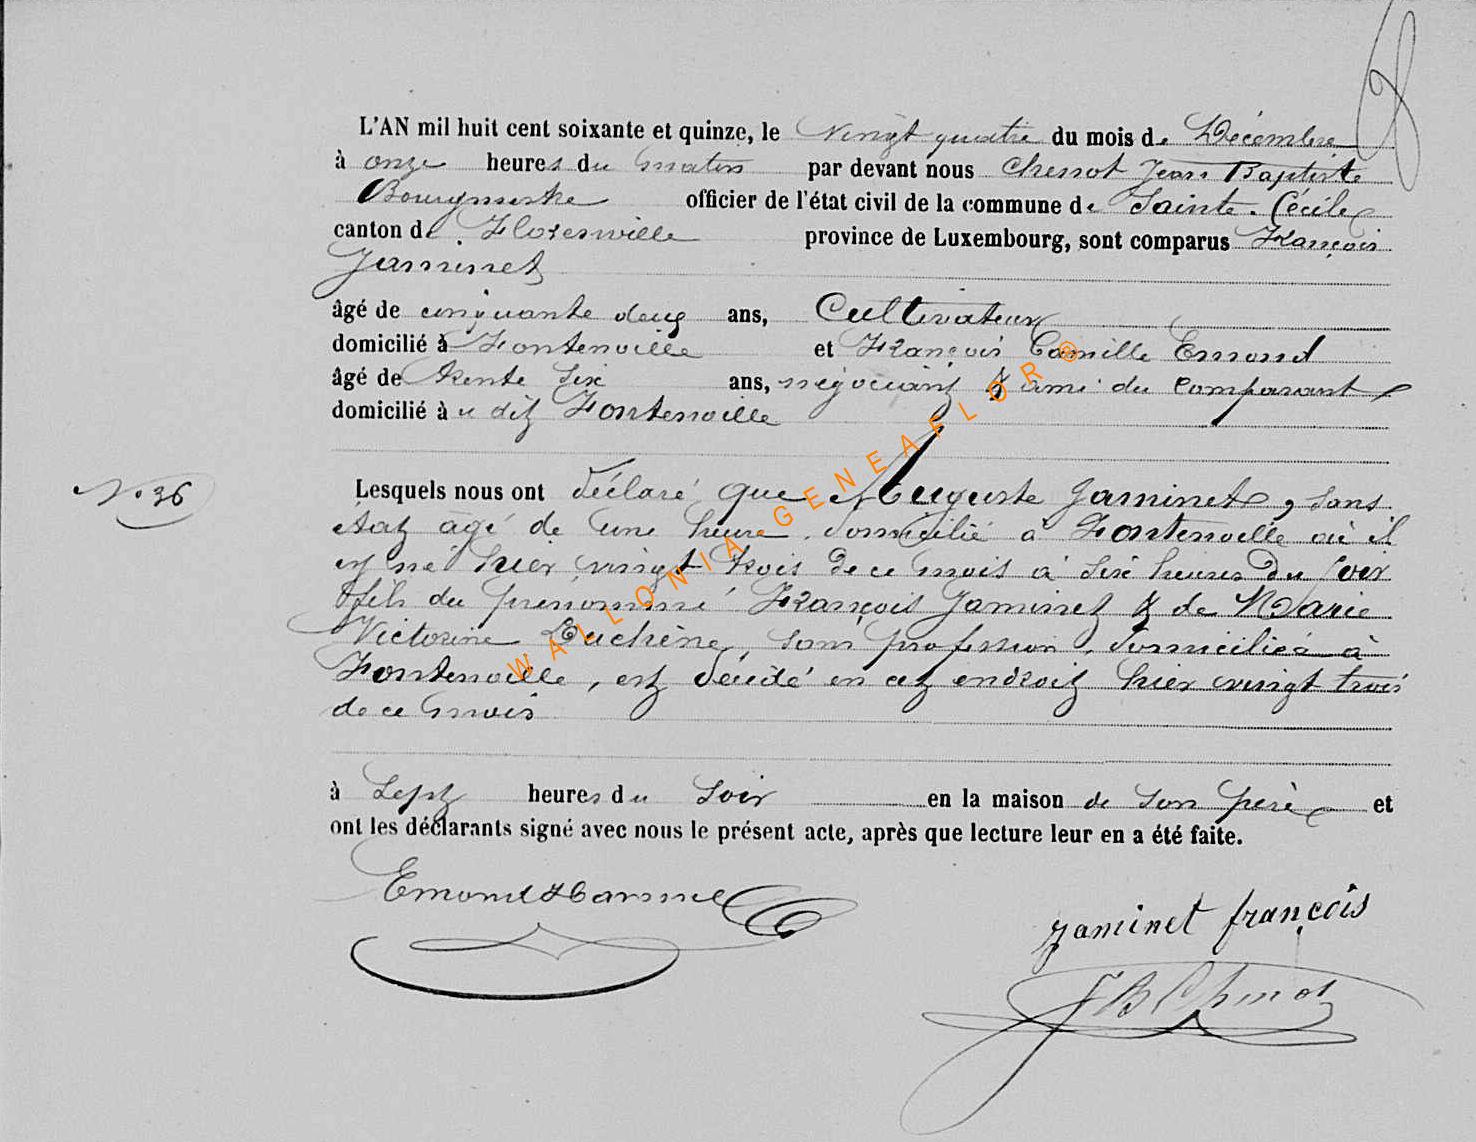 L'AN mil huit cent soixante et quinze, le vingt quatre du mois de Décembre
à onze heures du matin par devant nous Chenot Jean Baptiste
Bourgmestre officier de l'état civil de la commune de Sainte-Cécile
canton de Florenville province de Luxembourg, sont comparus François
Jaminet
âgé de cinquante deux ans, Cultivateur
domicilié à Fontenoille et François Camille Emond
âgé de trente six ans, négociant & ami du comparant
domicilié à u dit Fontenoille
N° 36
Lesquels nous ont déclaré que Auguste Jaminet, sans
état âgé de une heure, domicilié à Fontenoille où il
est né hier vingt trois de ce mois à six heures du soir
fils du prénommé François Jaminet & de Marie
Victorine Duchène, sans profession, domiciliés à
Fontenoille, est décédé en cet endroit hier vingt trois
de ce mois
à sept heures du soir en la maison de son père et
ont les déclarants signé avec nous le présent acte, après que lecture leur en a été faite.
Emond
jaminet françois
J B Chenot
WALLONIA-GENEAFLOR®